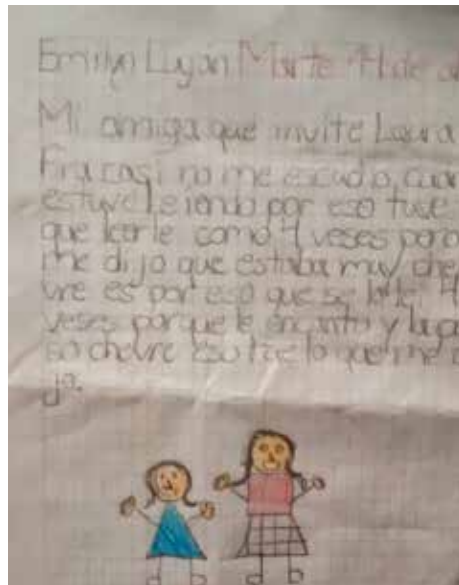 Emilyn Luyán Marte 4 de a
Mi amiga que invite Laura
casi no me escudo, cuan
estuve leiendo por eso tuve
que leerle como 4 veses pero
me dijo que estaba muy che
vre es por eso que se lo lei 4
veses porque le encanto y la pa
so chevre eso fue lo que me
jo.